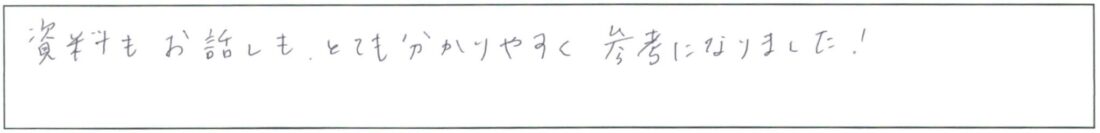 資料もお話しも、とても分かりやすく参考になりました!